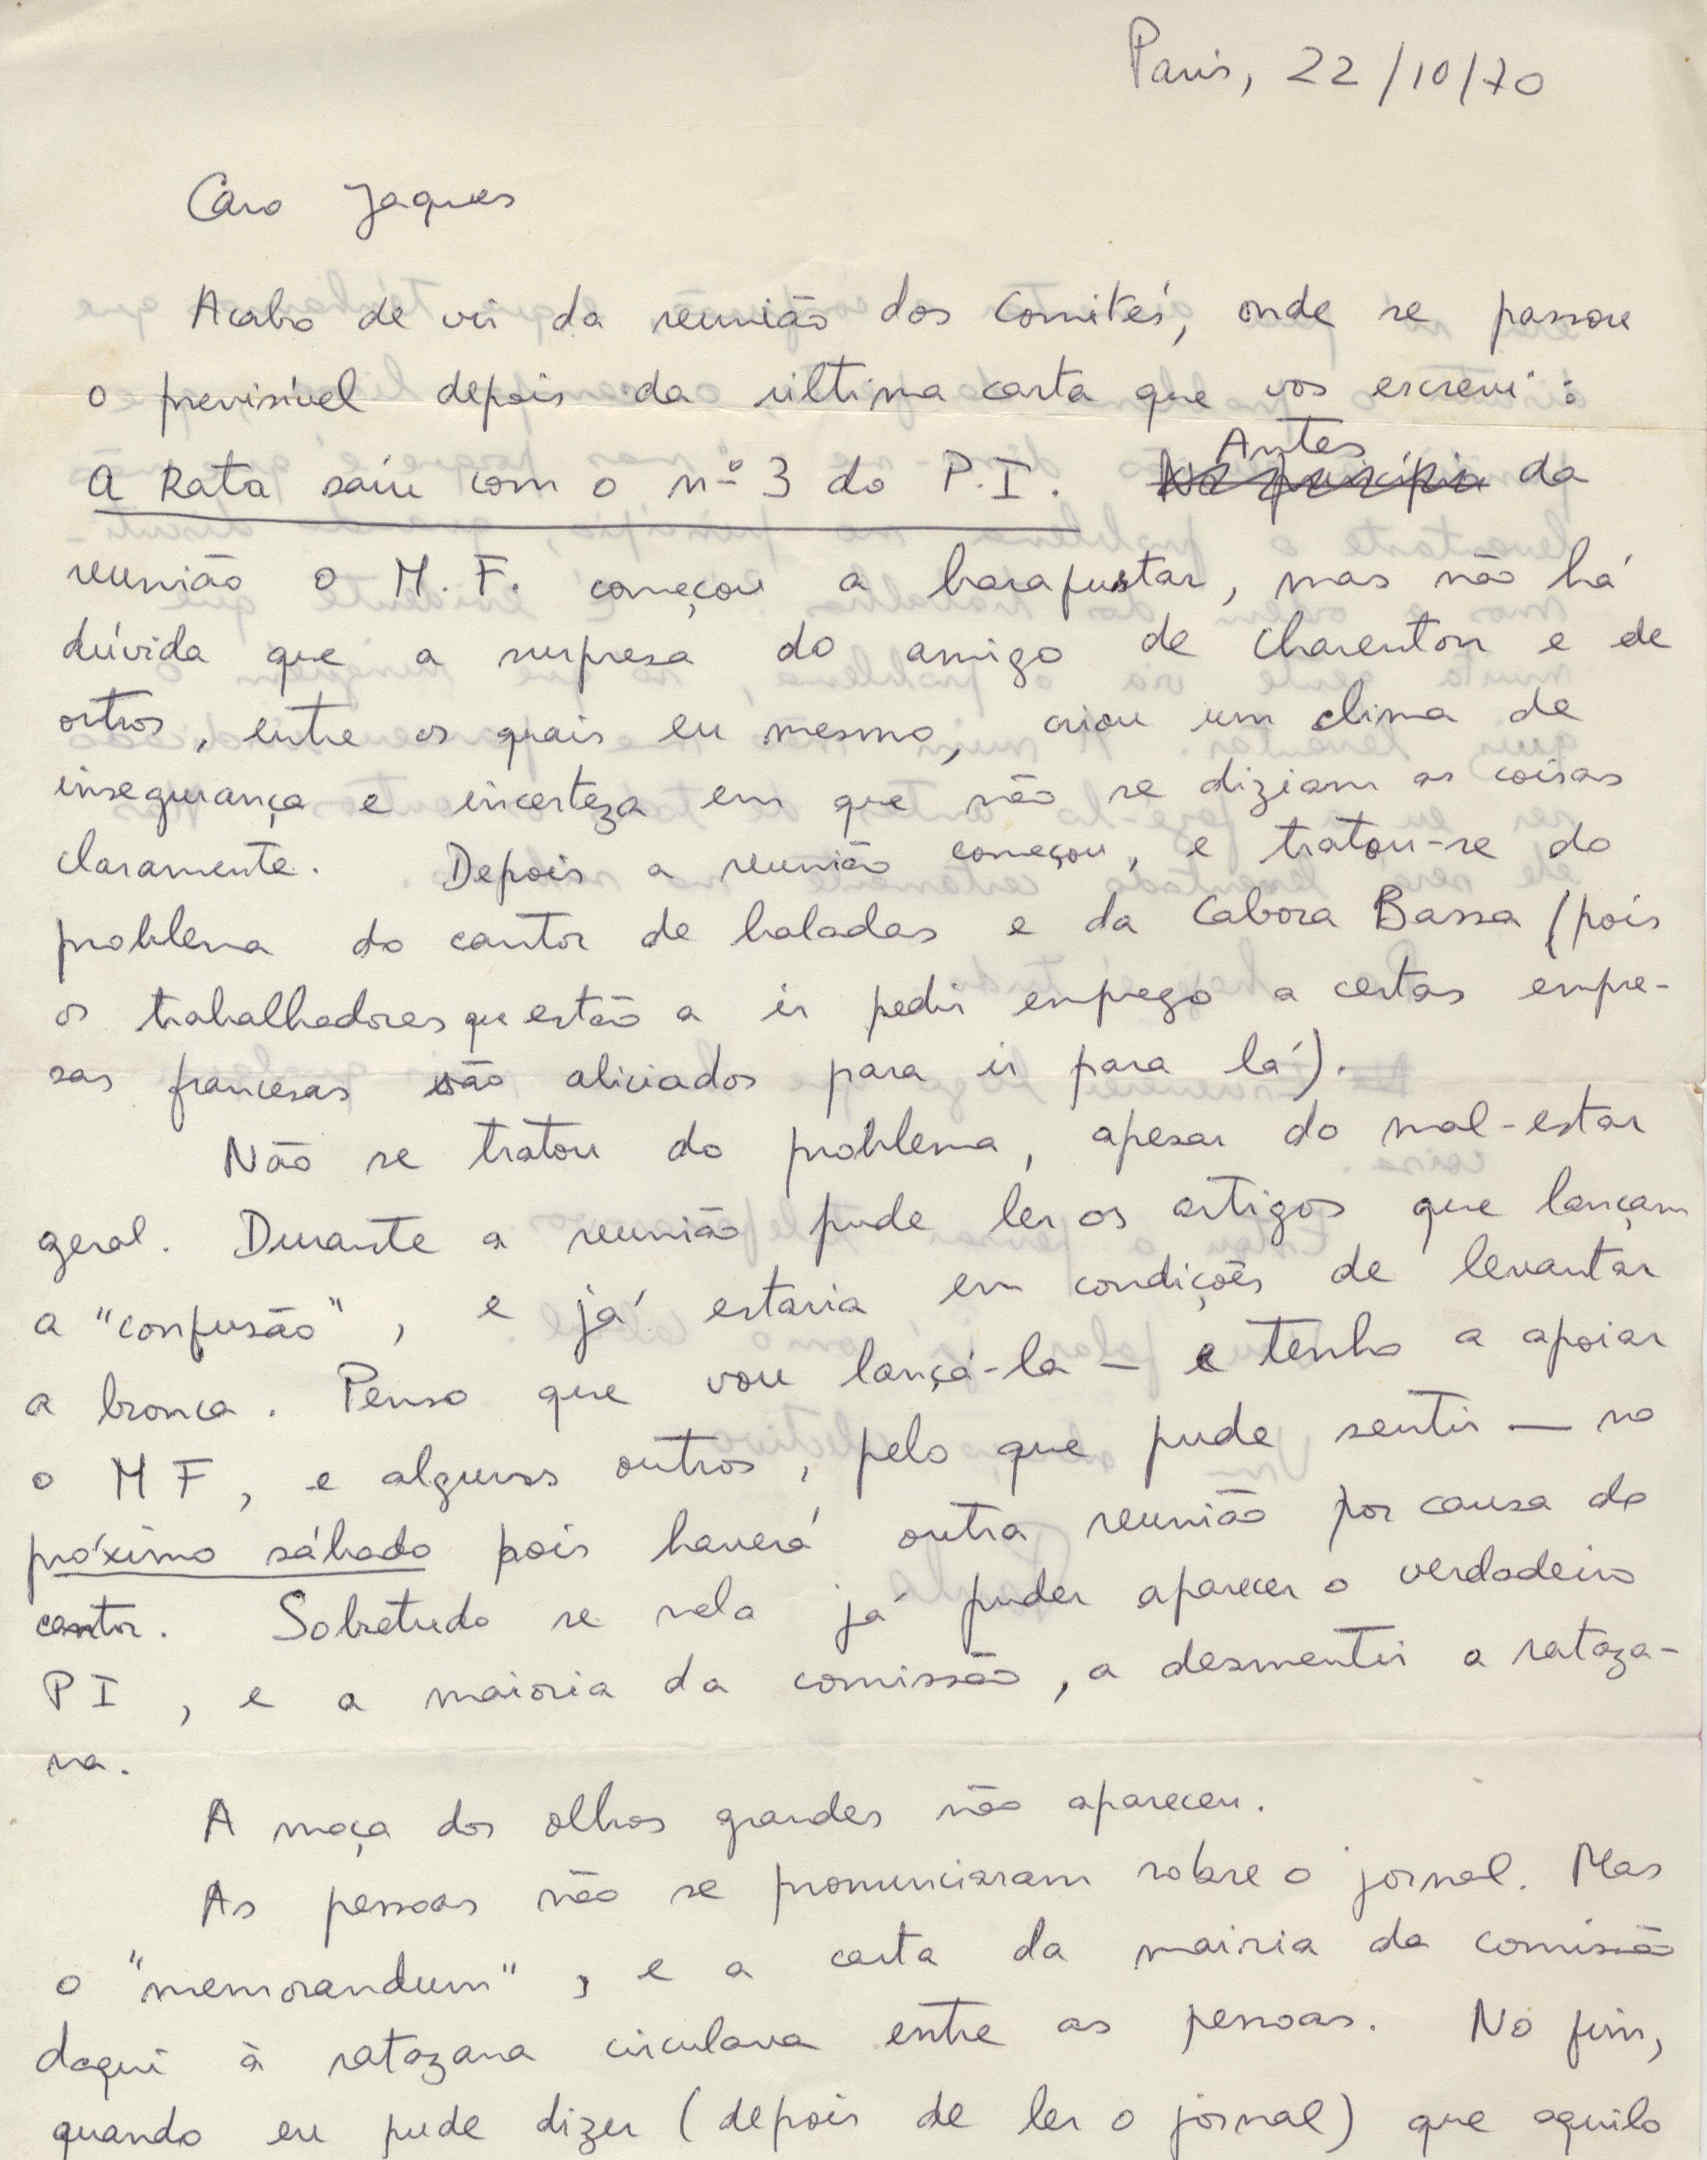 Paris, 22/10/70
Caro Jaques
Acabo de vir da reunião dos Comités, onde se passou
o previsível depois da última carta que vos escrevi:
A Rata saíu com o nº 3 do P.I. Antes da
reunião o M.F. começou a barafustar, mas não há
dúvida que a surpresa do amigo de Charenton e de
outros, entre os quais eu mesmo, criou um clima de
insegurança e incerteza em que não se diziam as coisas
claramente. Depois a reunião começou, e tratou-se do
problema do cantor de baladas e da Cabora Bassa (pois
os trabalhadores que estão a ir pedir emprego a certas empre-
sas francesas são aliciados para ir para lá).
Não se tratou do problema, apesar do mal-estar
geral. Durante a reunião pude ler os artigos que lançam
a "confusão", e já estaria em condições de levantar
a bronca. Penso que vou lançá-la — e tenho a apoiar
o MF, e alguns outros, pelo que pude sentir — no
próximo sábado pois haverá outra reunião por causa do
cantor. Sobretudo se nela já puder aparecer o verdadeiro
PI, e a maioria da comissão, a desmentir a rataza-
na.
A moça dos olhos grandes não apareceu.
As pessoas não se pronunciaram sobre o jornal. Mas
o "memorandum", e a carta da maioria da comissão
daqui à ratazana circulava entre as pessoas. No fim,
quando eu pude dizer (depois de ler o jornal) que aquilo